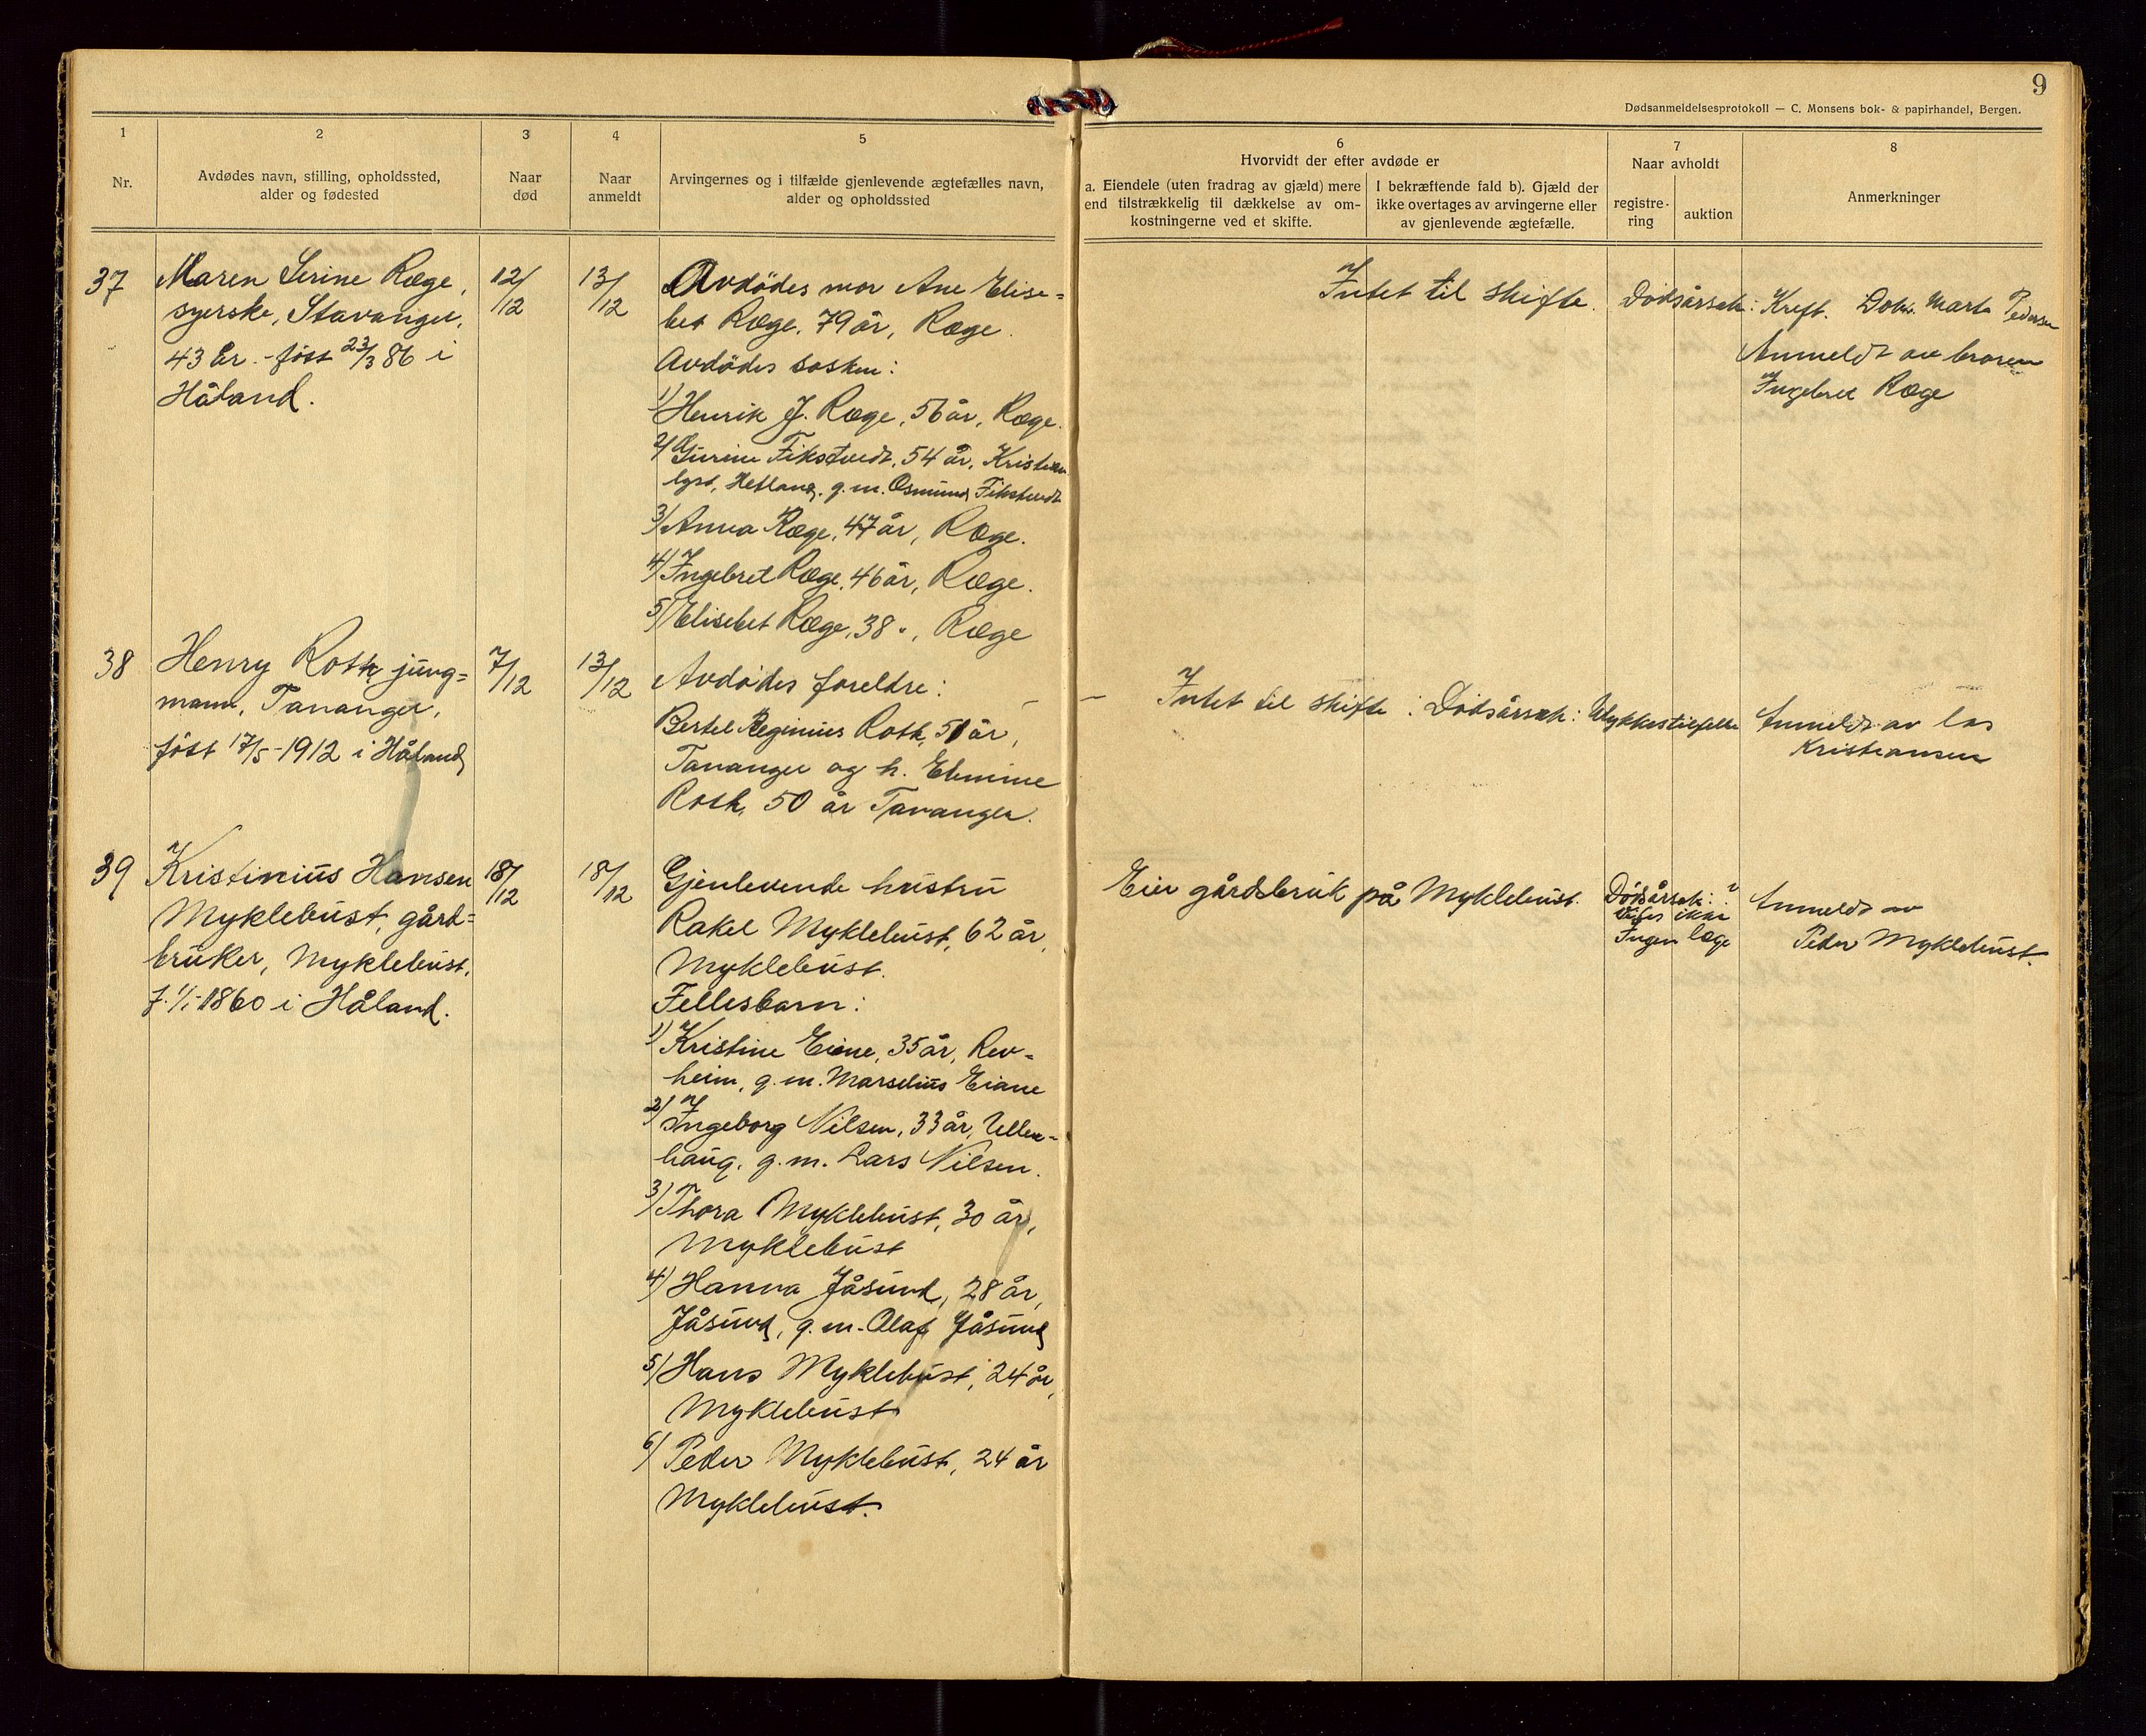 9
Dødsanmeldelsesprotokoll — C. Monsens bok- & papirhandel, Bergen.
1
Nr.
2
Avdødes navn, stilling, opholdssted,
alder og fødested
3
Naar
død
4
Naar
anmeldt
5
Arvingernes og i tilfælde gjenlevende ægtefælles navn,
alder og opholdssted
6
Hvorvidt der efter avdøde er
a. Eiendele (uten fradrag av gjæld) mere
end tilstrækkelig til dækkelse av om-
kostningerne ved et skifte.
I bekræftende fald b). Gjæld der
ikke overtages av arvingerne eller
av gjenlevende ægtefælle.
7
Naar avholdt
registre-
ring
auktion
8
Anmerkninger
37
Maren Serine Ræge,
syerske, Stavanger,
43 år - født 23/3 86 i
Håland.
12/12
13/12
Avdødes mor Ane Elise=
bet Ræge, 79 år, Ræge.
Avdødes søsken:
1) Henrik J. Ræge, 56 år, Ræge.
2) Gurine Fikstvedt, 54 år, Kristian
lyst, Hetland, g.m. Osmund Fikstvedt
3) Anna Ræge, 47 år, Ræge.
4) Ingebret Ræge, 46 år, Ræge.
5) Elisebet Ræge, 38 ", Ræge
Intet til skifte.
Dødsårsak: Kreft. Marta Pedersen
Anmeldt av broren
Ingebret Ræge
38
Henry Roth, jung=
mann, Tananger,
født 17/5-1912 i Håland
7/12
13/12
Avdødes foreldre:
Bertel Reginius Roth, 51 år,
Tananger og h. Elmine
Roth, 50 år Tananger.
Intet til skifte: Dødsårsak: Ulykkestilfelle
Anmeldt av
Kristiansen
39
Kristinius Hansen
Myklebust, gård=
bruker, Myklebust,
f. 1/1-1860 i Håland.
18/12
18/12
Gjenlevende hustru
Rakel Myklebust, 62 år,
Myklebust.
Fellesbarn:
1) Kristine Eiane, 35 år, Rev=
heim, g.m. Marselius Eiane
2) Ingeborg Nilsen, 33 år, Ullen-
haug, g.m. Lars Nilsen.
3) Thora Myklebust, 30 år,
Myklebust
4) Hanna Jåsund, 28 år,
Jåsund, g.m. Olaf Jåsund
5) Hans Myklebust, 24 år,
Myklebust
6) Peder Myklebust, 24 år
Myklebust.
Eier gårdsbruk på Myklebust.
Dødsårsak: ?
Vites ikke
Ingen læge
Anmeldt av
Peder Myklebust.